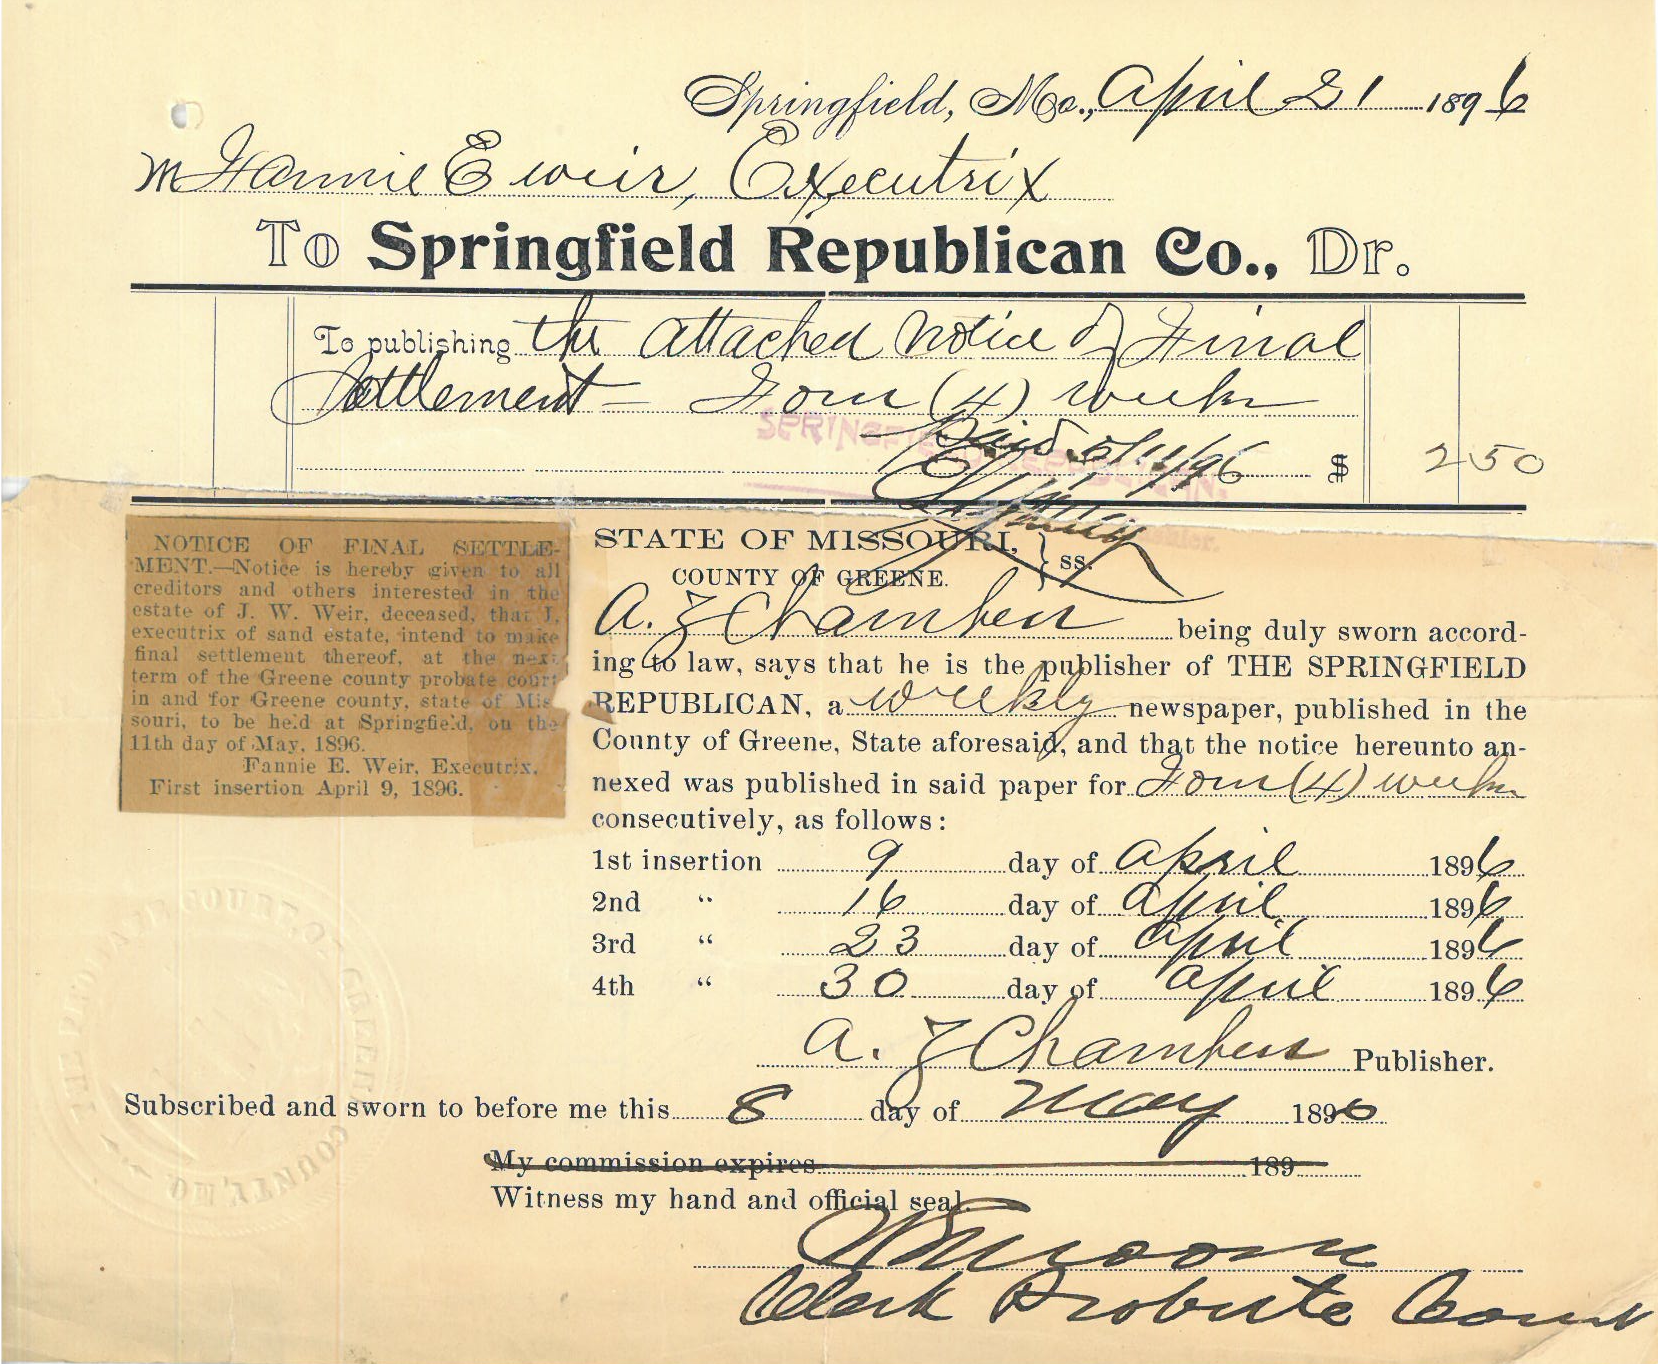 Springfield, Mo., April 21 1896
M Fannie E Weir, Executrix
To Springfield Republican Co., Dr.
To publishing the attached notice of Final
Settlement – Four (4) weeks
SPRINGFIELD REPUBLICAN.
Paid 5/11/96
$ 2 50
NOTICE OF FINAL SETTLE-
MENT.—Notice is hereby given to all
creditors and others interested in the
estate of J. W. Weir, deceased, that I,
executrix of sand estate, intend to make
final settlement thereof, at the next
term of the Greene county probate court
in and for Greene county, state of Mis-
souri, to be held at Springfield, on the
11th day of May, 1896.
Fannie E. Weir, Executrix.
First insertion April 9, 1896.
STATE OF MISSOURI, } ss.
COUNTY OF GREENE.
A. Z Chambers being duly sworn accord-
ing to law, says that he is the publisher of THE SPRINGFIELD
REPUBLICAN, a weekly newspaper, published in the
County of Greene, State aforesaid, and that the notice hereunto an-
nexed was published in said paper for Four (4) weeks
consecutively, as follows:
1st insertion 9 day of April 1896
2nd " 16 day of April 1896
3rd " 23 day of April 1896
4th " 30 day of April 1896
A. Z Chambers Publisher.
Subscribed and sworn to before me this 8 day of May 1896
My commission expires 189
Witness my hand and official seal.
Clerk Probate Court
THE PROBATE COURT OF GREENE COUNTY, MO.